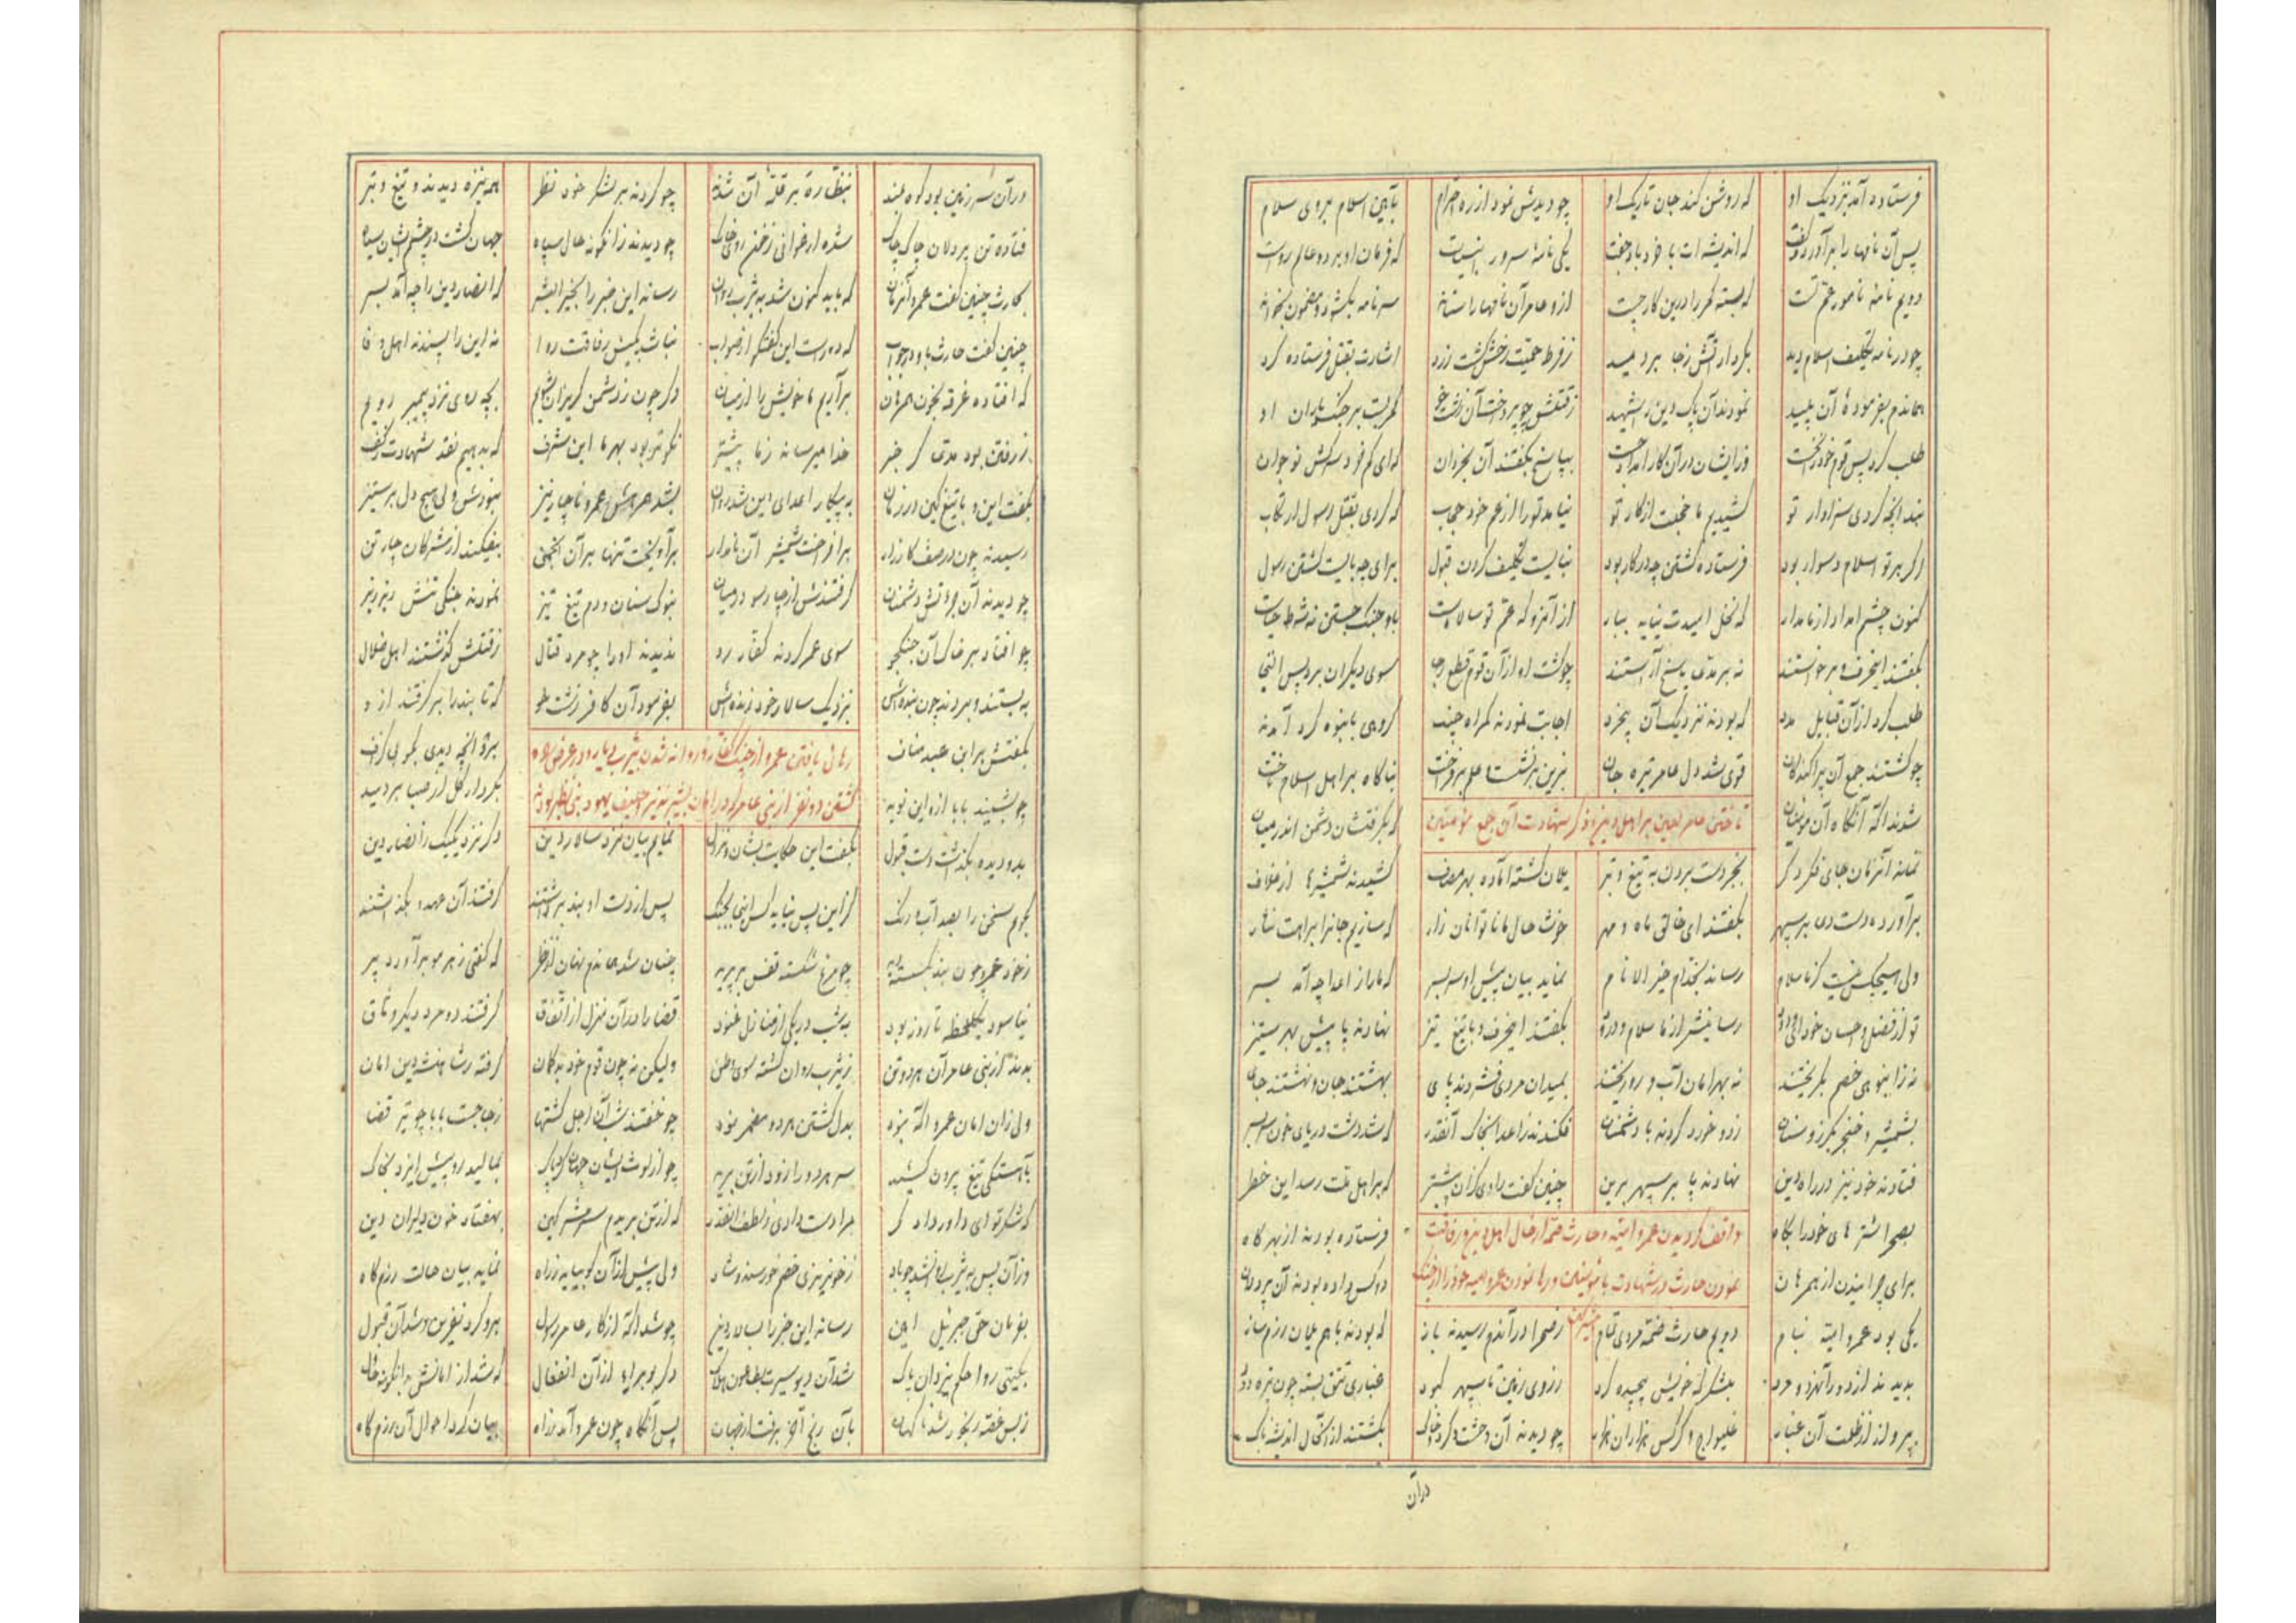 فرستاده آمد بنزدیک او که روشن کند جان تاریک او چو دیدش نمود از ره احترام بآیین اسلام بروی سلام
پس آن نامها را برآورد و گفت که اندیشه ات با خرد باد جفت یکی نامه سرور انبیاست که فرمان او بر دو عالم رواست
دویم نامه نامور عم تست که بسته کمر را درین کار چست ازو عامر آن نامها را ستاند سر نامه بگشود و مضمون بخواند
چو در نامه تکلیف اسلام دید بکردار آتش ز جا بردمید ز فرط حمیت رخش گشت زرد اشارت بقتل فرستاده کرد
هماندم بفرموده آن پلید نمودند آن پاک دین را شهید ز قتلش چو پرداخت آن کمر بست بر جنگ یاران او
طلب کرد پس قوم خود را نخست وز ایشان در آن کار امداد جست بپاسخ بگفتند آن بخردان که ای کم خرد سرکش نوجوان
بد آنچه کردی سزاوار تو کشیدیم ما خجلت از کار تو نیامد تو را از عم خود حجاب که کردی بقتل رسول ارتکاب
اگر بر تو اسلام دشوار بود فرستاده کشتن چه در کار بود نبایست تکلیف کردن قبول برای چه بایست کشتن رسول
کنون چشم امداد از ما مدار که نخل امیدت نیاید ببار از آنرو که عم تو سالار ماست باو جنگ جستن نه شرط حیاست
بگفتند اینحرف و برخواستند نه بر مدعی پاسخ آراستند چو گشت او از آن قوم قطع رجا سوی دیگران برد پس التجا
طلب کرد از آن قبایل مدد که بودند نزدیک آن بیخرد اجابت نمودند گمراه چند گروهی بانبوه گرد آمدند
چو گشتند جمع آن پراکندگان قوی شد دل عامر تیره جان بزین برنشست و علم برفراخت بناگاه بر اهل اسلام تاخت
شدند آگه آنگاه آن مومنان که بگرفتشان دشمن اندر میان
تاختن عامر لعین بر اهل دین و ذکر شهادت آن جمع مؤمنین
نماند آنزمان جای فکر دگر بجز دست بردن به تیغ و تبر یلان گشته آماده بهر مصاف کشیدند شمشیرها از غلاف
برآورده دست دعا بر سپهر بگفتند ای خالق ماه و مهر خوشا حال ما ناتوانان زار که سازیم جانرا براهت نثار
ولی هیچکس نیست کز ما سلام رساند بخدام خیر الانام نماید بیان پیش او سربسر که ما را ز اعدا چه آمد بسر
تو از فضل و احسان خود ای ودود رسانیش از ما سلام و درود بگفتند اینحرف و با تیغ تیز نهادند پا پیش بهر ستیز
نه ز انبوهی خصم بگریختند نه بهر امان آب رو ریختند بمیدان مردی فشردند پای بهشتند جان و نهشتند جای
بشمشیر و خنجر بگرز و سنان زد و خورد کردند با دشمنان فکندند ز اعدا بخاک آنقدر که شد دشت دریای خون سربسر
فتادند خود نیز در راه دین نهادند پا بر سپهر برین چنین گفت راوی کزان پیشتر که بر اهل ملت رسد این خطر
بصحرا شتر های خود را پگاه فرستاده بودند از بهر گاه
واقف گردیدن عمرو امیه و حارث صمه از حال اهل دین و رفاقت
برای چرانیدن از همرهان دو کس داده بودند آن پردلان
نمودن حارث در شهادت با مؤمنین و رها نمودن عمرو امیه خود را از چنگ مشرکین
یکی بود عمرو امیه بنام دویم حارث صمه مردی تمام ز صحرا در آندم رسیدند باز که بودند با هم یلان رزم ساز
بدیدند از دور آنمرد و مرد بلشکرگه خویش پیچیده گرد ز روی زمین تا سپهر کبود غباری تتق بسته چون تیره دود
برو از ز ظلمت آن غبار غلیواج و کرکس هزاران هزار چو دیدند آن وحشت و گرد و خاک بگشتند از آنحال اندیشه ناک
در آن
در آن سرزمین بود کوه بلند بنظاره بر قله آن شدند چو کردند بر لشکر خود نظر همه نیزه دیدند و تیغ و تبر
فتاده تن پردلان چاک چاک شده ارغوانی ز خون روی خاک چو دیدند زانگونه حال سپاه جهان گشت در چشم ایشان سیاه
بحارث چنین گفت عمرو آنزمان که باید کنون شد به یثرب روان رساند این خبر را بخیر البشر که انصار دین را چه آمد بسر
چنین گفت حارث باو در جواب که دور است این گفتگو از صواب نباشد بکیش رفاقت روا نه این را پسندند اهل وفا
که افتاده غرقه بخون همرهان برآریم ما خویش را از میان دگر چون ز دشمن گریزان شویم بچه روی نزد پیمبر رویم
ز رفتن بود مدعا گر خبر خدا میرساند ز ما پیشتر نکوتر بود بهر ما این شرف که بدهیم نقد شهادت ز کف
بگفت این و با تیغ کین در زمان به پیکار اعدای دین شد روان بشد همرهش عمرو ناچار نیز نبودش ولی هیچ دل بر ستیز
رسیدند چون در صف کارزار برافراخت شمشیر آن نامدار برآویخت تنها بر آن انجمن بیفکند از مشرکان چار تن
چو دیدند آن جرأتش دشمنان گرفتندش از چارسو در میان بنوک سنان و دم تیغ تیز نمودند جنگی تنش ریز ریز
چو افتاد بر خاک آن جنگجو سوی عمرو کردند کفار رو ندیدند او را چو مرد قتال ز قتلش گذشتند اهل ضلال
به بستند و بردند چون بنده اش بنزدیک سالار خود زنده اش بفرمود آن کافر زشت خو که تا بند را برگرفتند ازو
بگفتش بر ابن عبد مناف برو آنچه دیدی بگو بی گزاف
رهائی یافتن عمرو از چنگ کفار و روانه شدن یثرب دیار و در عرض راه
چو بشنید بابا از او این نوید بکردار گل از صبا بردمید
کشتن دو نفر از بنی عامر که در امان بشیر نذیر و حلیف یهود بنی نظیر بودند
بدو دیده بگذاشت دست قبول بگفت این حکایت بشان و نزول نمایم بیان نزد سالار دین دگر نزد یکیک ز انصار دین
بگویم سخن را بصد آب و رنگ کز این پس نیاید کس اینی بجنگ پس از دست او بند برداشتند گرفتند آن عهد و بگذاشتند
ز خود عمرو چون بند بگسسته دید چو مرغ شکسته قفس برپرید چنان شد هماندم نهان از نظر که گفتی ز هر مو برآورد پر
نیاسود یکلحظه تا روز بود به شب در یکی از منازل غنود قضا را در آن منزل از اتفاق گرفتند دو مرد دیگر وثاق
بدند از بنی عامر آن هر دو تن ز یثرب روان گشته سوی وطن ولیکن نه چون قوم خود بدگمان گرفته ز شاهنشه دین امان
ولی زان امان عمرو آگه نبود بدل کشتن هر دو مضمر نمود چو خفتند شب آن اجل گشتها ز جا جست بابا چو تیر قضا
بآهستگی تیغ بیرون کشید سر هر دو را زود از تن برید چو از لوث ایشان جهان کرد پاک بمالید رو پیش ایزد بخاک
که شکر تو ای داور دادگر مرا دست دادی ز لطف آنقدر که از تن بریدم سر مشرکین بهفتاد خون دلیران دین
وز آن پس به یثرب روان شد چو باد ز خونریزی خصم خورسند و شاد ولی پیش از آن کو بیاید ز راه نماید بیان حالت رزمگاه
بفرمان حق جبرئیل امین رساند این خبر را بسالار دین چو شد آگه از کار عامر رسول برو کرد نفرین و شد آن قبول
بگیتی روا حکم یزدان پاک شد آن دیو سیرت بطاعون هلاک دگر بوبراء از آن انفعال که شد از امانش بدانگونه حال
ز بس غصه رنجور شد ناگهان بآن رنج آخر برفت از جهان پس آنگاه چون عمرو آمد ز راه بیان کرد احوال آن رزمگاه